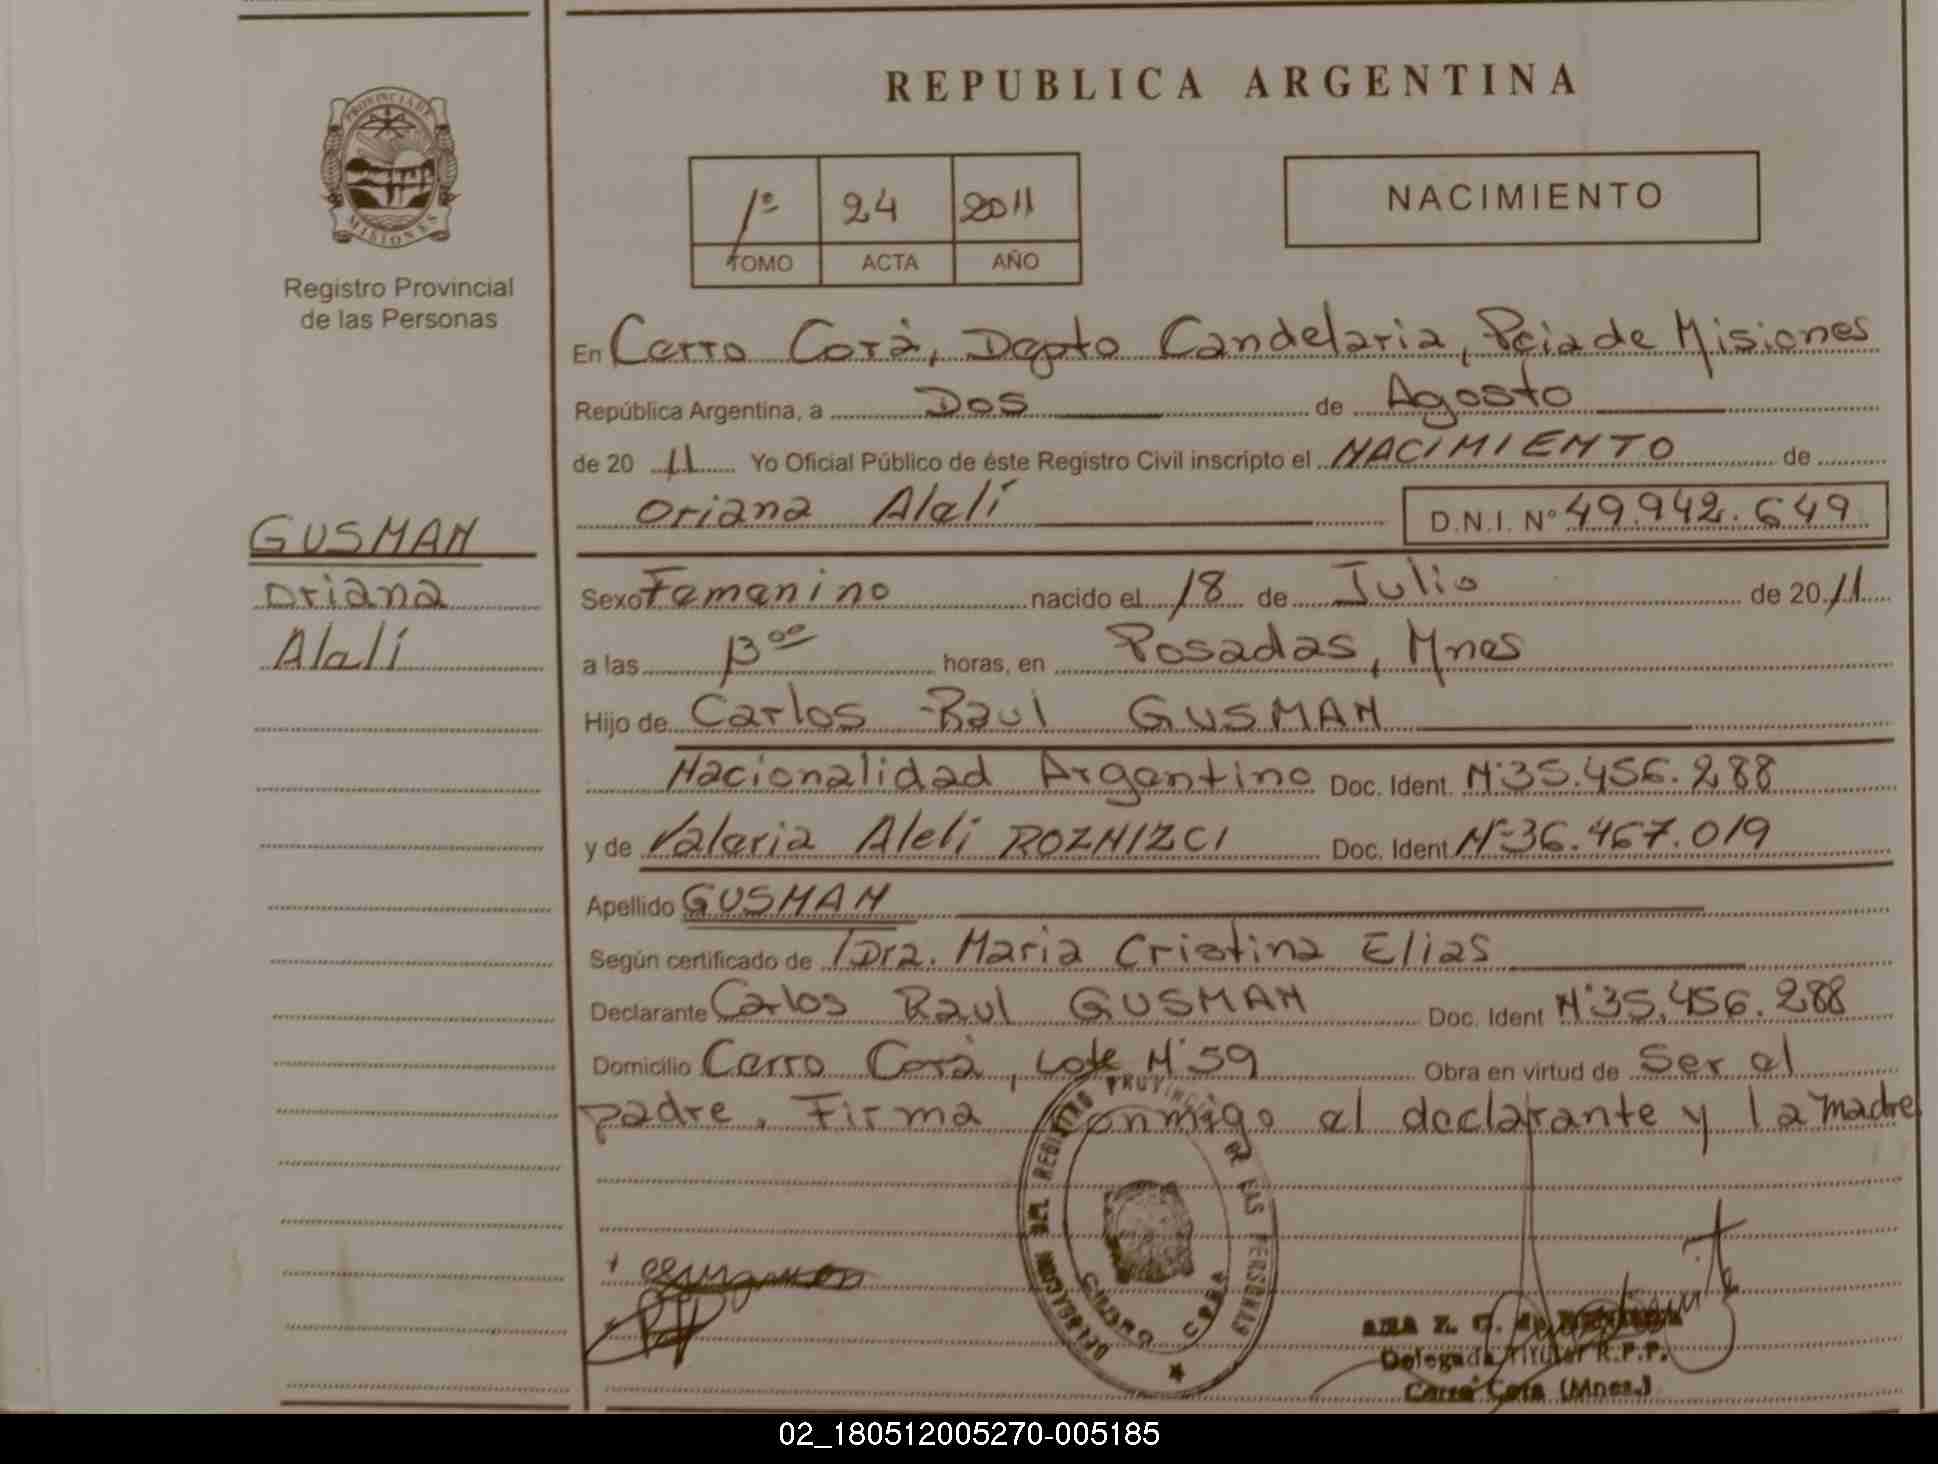 REPUBLICA ARGENTINA
PROVINCIA DE
MISIONES
Registro Provincial
de las Personas
1º 24 2011
TOMO ACTA AÑO
NACIMIENTO
En Cerro Corà, Depto Candelaria, Pcia de Misiones
República Argentina, a Dos de Agosto
de 20 11 Yo Oficial Público de éste Registro Civil inscripto el NACIMIENTO de
Oriana Alelí D.N.I. Nº 49.942.649
GUSMAN
Oriana
Alelí
Sexo Femenino nacido el 18 de Julio de 20 11
a las 13⁰⁰ horas, en Posadas, Mnes
Hijo de Carlos Raul GUSMAN
Nacionalidad Argentino Doc. Ident. Nº 35.456.288
y de Valeria Aleli ROZNIZCI Doc. Ident Nº 36.467.019
Apellido GUSMAN
Según certificado de Dra. Maria Cristina Elias
Declarante Carlos Raul GUSMAN Doc. Ident Nº 35.456.288
Domicilio Cerro Corà, Lote Nº 59 Obra en virtud de Ser el
padre. Firma conmigo el declarante y la madre
DELEGACION DEL REGISTRO PROVINCIAL DE LAS PERSONAS
CERRO CORA
ANA Z. G. de
Delegada Titular R.P.P.
Cerro Cora (Mnes.)
02_180512005270-005185